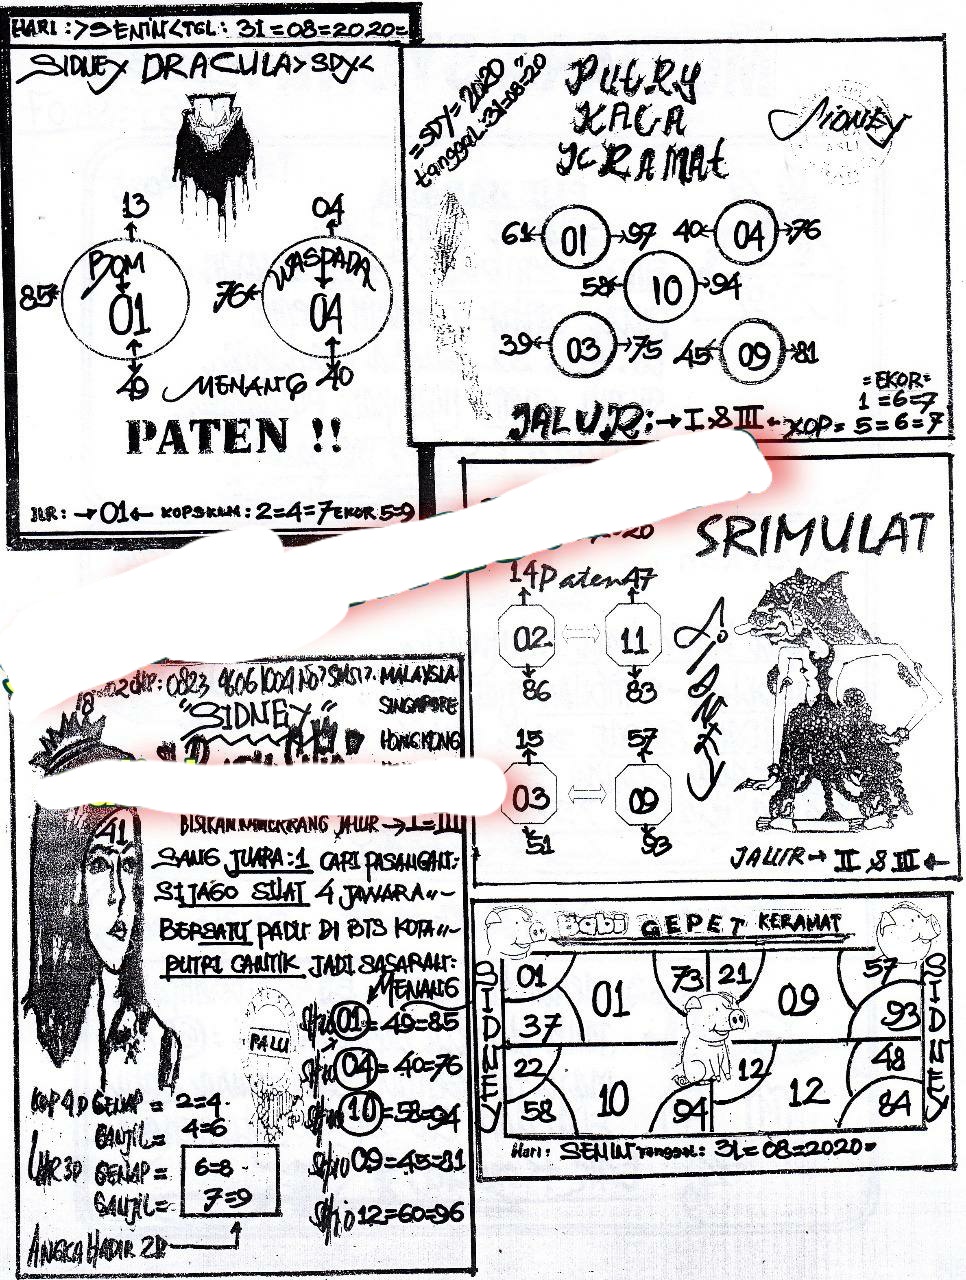 HARI :> SENIN < TGL : 31=08=2020=
SIDNEY DRACULA > SDY <
13
04
BOM
WASPADA
85
01
76
04
49
MENANG
40
PATEN !!
JLR : → 01 ← KOP3KLM : 2=4=7 EKOR 5=9
=SDY=2020
tanggal:31=08=20
PUtRY
KACA
KRAMAt
SIDNEY
61 01 97 40 04 76
58 10 94
39 03 75 45 09 81
=EKOR=
1=6=7
JALUR : → I & III ← KOP= 5=6=7
SRIMULAT
14 Paten 47
02
11
86
83
15
57
03
09
51
93
JALUR → II & III ←
0823 4606 1004 NO? SMS!?. MALAYSIA
"SIDNEY"
SINGAPORE
HONGKONG
41
BISIKAN JALUR → I=III
SANG JUARA:1 CARI PASANGAN:
SIJAGO SILAT 4 JAWARA
BERSATU PADU DI BTS KOTA
PUTRI CANTIK JADI SASARAN:
MENANG
PALU
Shio 01=49=85
Shio 04=40=76
Shio 10=58=94
Shio 09=45=81
Shio 12=60=96
KOP 4D GENAP = 2=4
GANJIL= 4=6
GENAP = 6=8
GANJIL= 7=9
ANGKA HADIR 2D
Babi GEPET KERAMAT
SIDNEY
SIDNEY
01
73
21
57
01
09
37
93
22
12
48
10
12
58
94
84
Hari : SENIN Tanggal : 31=08=2020=